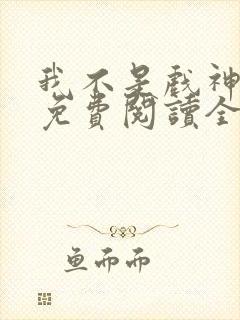 我不是戲神
免費閱讀全
鱼而而